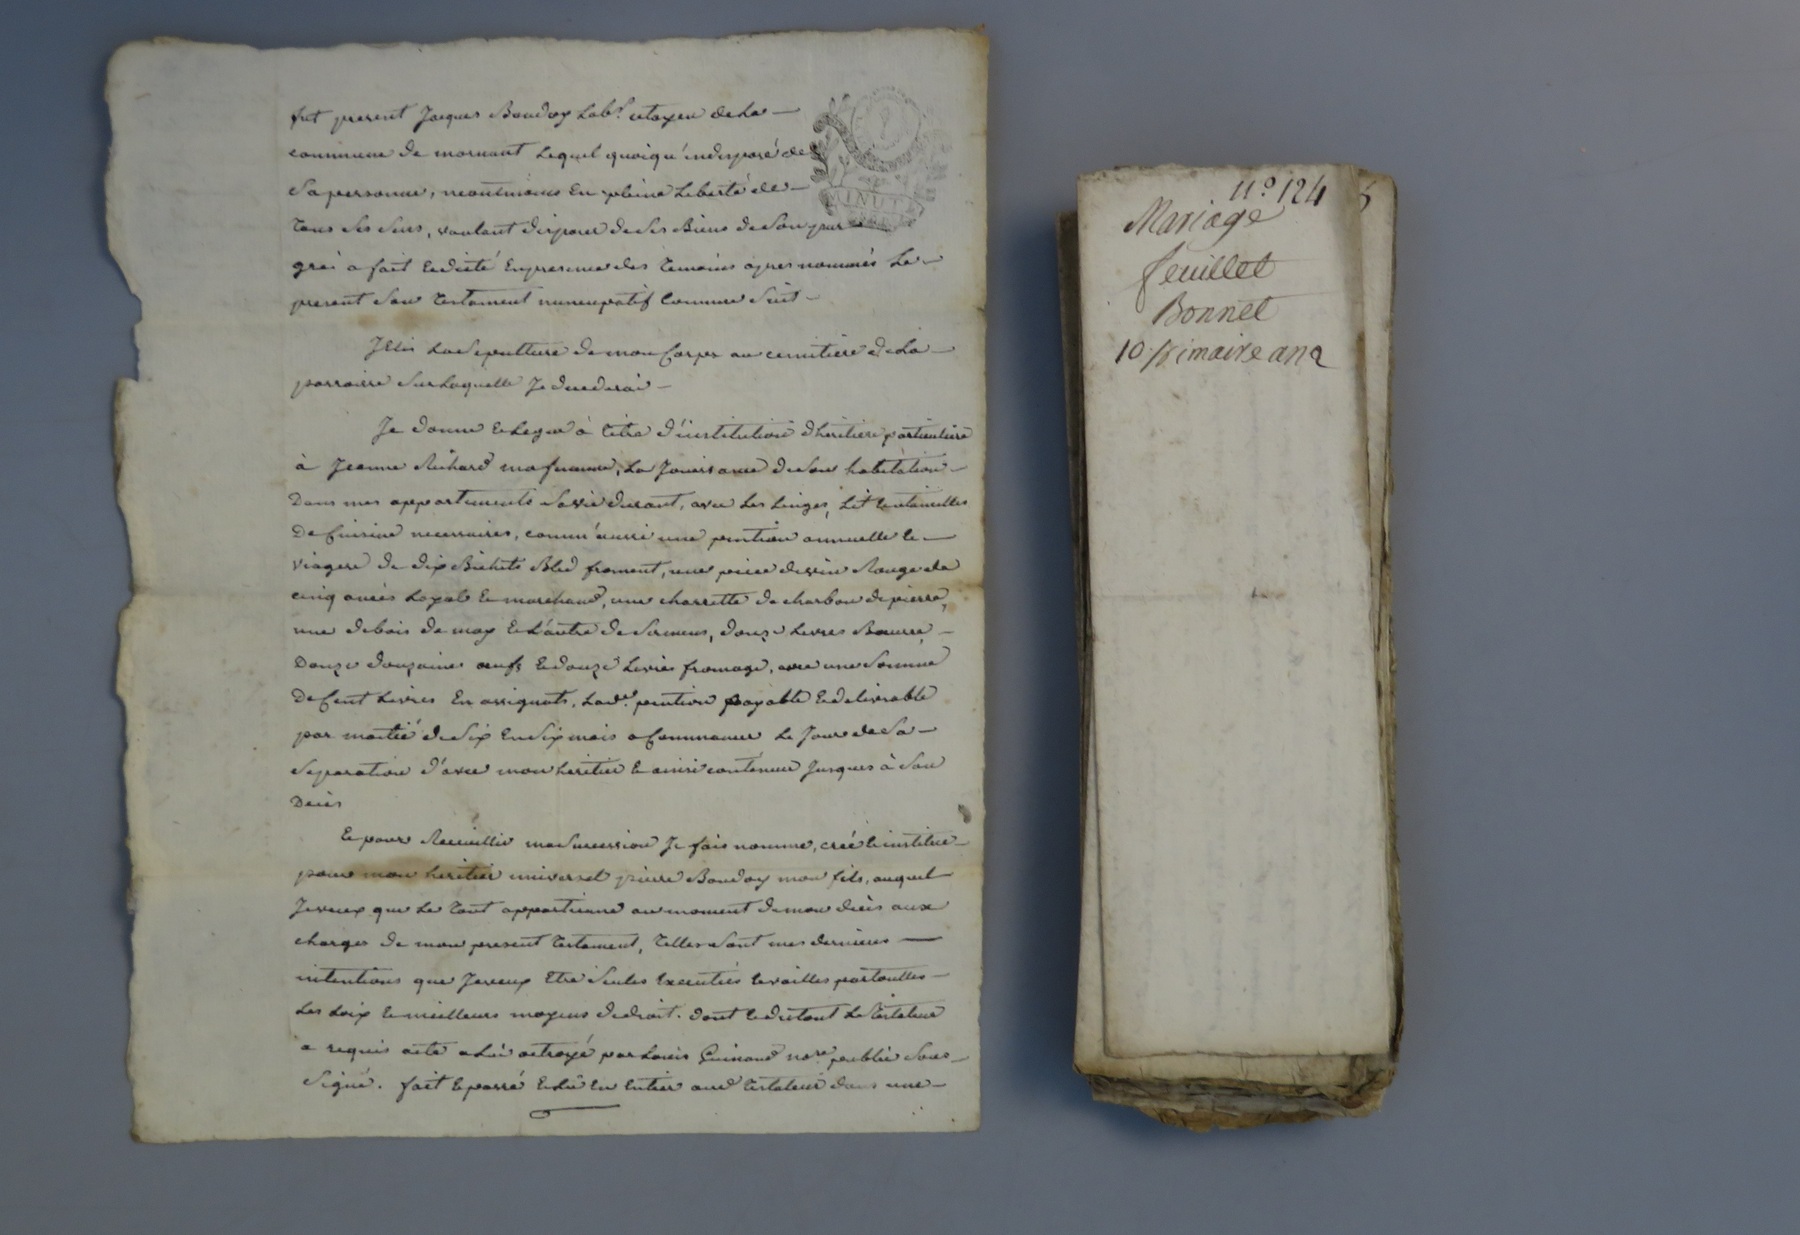 fut present Jacques Bouday Lab.r citoyen de La
commune de mornant Lequel quoique indisposé de
Sa personne, neantmoins En pleine Liberté de
Tous Ses Sens, voulant disposer de Ses Biens de Son pur
gré a fait Et dicté En presence des Temoins apres nommés Le
present Son Testament nuncupatif Comme Suit
J'Elis La Sepulture de mon Corps au cemitiere de La
parroisse Sur Laquelle Je decederai
Je donne Et Legue à titre d'institution d'heritiere particuliere
à Jeanne Richard ma femme, La Jouissance de Son habitation
Dans mes appartements Sa vie durant, avec Les Linges, Lit
De Cuisine necessaires, comm'aussi une pention annuelle Et
viagere de dix Bichets Bled froment, une piece de vin Rouge de
cinq anées Loyal Et marchand, une charrette de charbon de pierre,
une de bois de Et L'autre de Sermens, douze Livres Beurre,
Douze douzaines œufs Et douze Livres fromage, avec une Somme
De Cent Livres En assignats, Lad.e pention payable Et delivrable
par moitié de Six En Six mois a Commancer Le Jour de Sa
Separation d'avec mon heritier Et ainsi continuer Jusques à Son
Decès
Et pour Recueillir ma Succession Je fais nomme, créé Et institue
pour mon heritier universel pierre Bouday mon fils, auquel
Je veux que Le Tout appartienne au moment de mon decès aux
charges de mon present Testament, Telles Sont mes dernieres
intentions que Je veux Etre Seules Executées Et vailles par toutes
Les Loix Et meilleurs moyens de droit. Dont Et du tout Le Testateur
a requis acte a Lui octroyé par Louis Guinand no.re public Sous
Signé. fait Et passé Et Lû En Entier aud Testateur dans une
MINUTE
n° 124
5
Mariage
feuillet
Bonnet
10 frimaire an 2